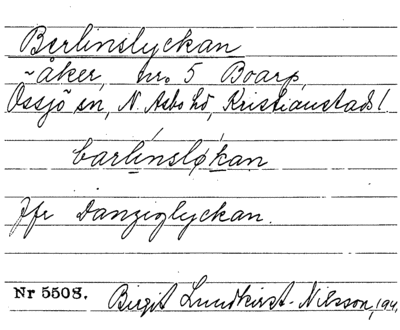 Berlinslyckan
~åker, nr. 5 Boarp,
Össjö sn, N. Asbo hd, Kristianstads l.
barlinsløkan
Jfr Danziglyckan.
Nr 5508.
Birgit Lundkvist-Nilsson, 194